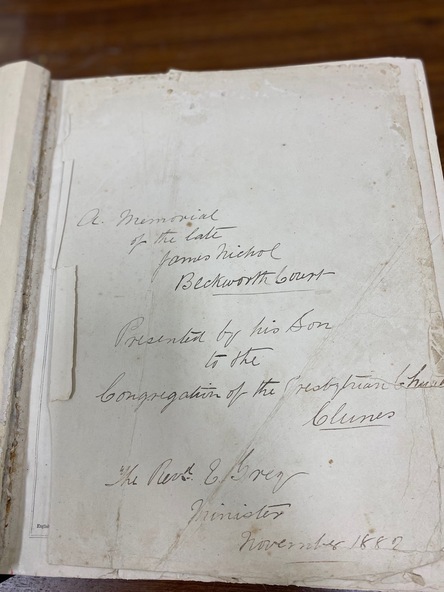 A Memorial
of the late
James Nichol
Beckworth Court
Presented by his Son
to the
Congregation of the Presbyterian
Clunes
The Revd. E
Minister
November 188